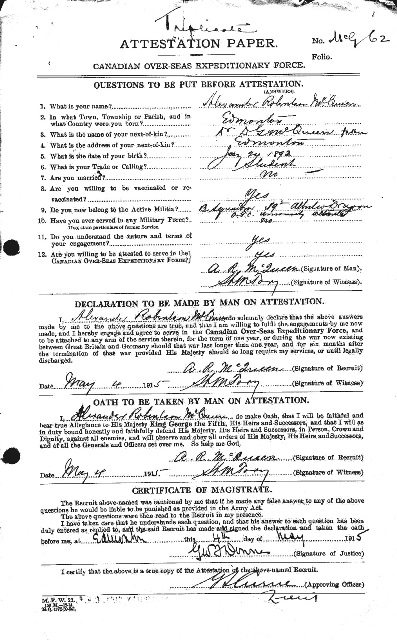 Triplicate
ATTESTATION PAPER.
No. McG 62
Folio.
CANADIAN OVER-SEAS EXPEDITIONARY FORCE.
QUESTIONS TO BE PUT BEFORE ATTESTATION.
(ANSWERS)
1. What is your name? Alexander Robertson McQueen
2. In what Town, Township or Parish, and in
what Country were you born? Edmonton
3. What is the name of your next-of-kin? Dr D G McQueen
4. What is the address of your next-of-kin? Edmonton
5. What is the date of your birth? 1892
6. What is your Trade or Calling? Student
7. Are you married? No
8. Are you willing to be vaccinated or re-
vaccinated? Yes
9. Do you now belong to the Active Militia? B Squadron 19th Alberta Dragoons
10. Have you ever served in any Military Force?
If so, state particulars of former Service. No
11. Do you understand the nature and terms of
your engagement? Yes
12. Are you willing to be attested to serve in the
CANADIAN OVER-SEAS EXPEDITIONARY FORCE? Yes
A. R. McQueen (Signature of Man).
H M Tory (Signature of Witness).
DECLARATION TO BE MADE BY MAN ON ATTESTATION.
I, Alexander Robertson McQueen do solemnly declare that the above answers
made by me to the above questions are true, and that I am willing to fulfil the engagements by me now
made, and I hereby engage and agree to serve in the Canadian Over-Seas Expeditionary Force, and
to be attached to any arm of the service therein, for the term of one year, or during the war now existing
between Great Britain and Germany should that war last longer than one year, and for six months after
the termination of that war provided His Majesty should so long require my services, or until legally
discharged.
A. R. McQueen (Signature of Recruit)
Date May 4 1915 H M Tory (Signature of Witness)
OATH TO BE TAKEN BY MAN ON ATTESTATION.
I, Alexander Robertson McQueen, do make Oath, that I will be faithful and
bear true Allegiance to His Majesty King George the Fifth, His Heirs and Successors, and that I will as
in duty bound honestly and faithfully defend His Majesty, His Heirs and Successors, in Person, Crown and
Dignity, against all enemies, and will observe and obey all orders of His Majesty, His Heirs and Successors,
and of all the Generals and Officers set over me. So help me God.
A. R. McQueen (Signature of Recruit)
Date May 4 1915 H M Tory (Signature of Witness)
CERTIFICATE OF MAGISTRATE.
The Recruit above-named was cautioned by me that if he made any false answer to any of the above
questions he would be liable to be punished as provided in the Army Act.
The above questions were then read to the Recruit in my presence.
I have taken care that he understands each question, and that his answer to each question has been
duly entered as replied to, and the said Recruit has made and signed the declaration and taken the oath
before me, at Edmonton this 4th day of May 1915
(Signature of Justice)
I certify that the above is a true copy of the Attestation of the above-named Recruit.
(Approving Officer)
Lieut
M. F. W. 23.